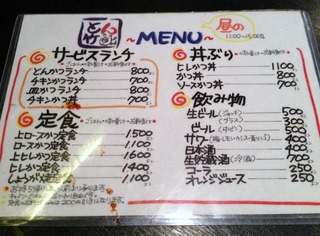 とん竹
~MENU~
昼の
11:00~15:00
サービスランチ
とんかつランチ 800
チキンかつランチ 700
皿かつランチ 800
チキン丼 700
定食
上ロースかつ定食 1500
ロースかつ定食 1100
上ヒレかつ定食 1600
ヒレかつ定食 1400
しょうが焼定食 1100
丼ぶり
ヒレかつ丼 1100
かつ丼 800
ソースかつ丼 700
飲み物
生ビール (ジョッキ) 500
(グラス) 300
ビール (中ビン) 500
サワー 400
日本酒 400
生貯蔵酒 (冷酒) 700
コーラ 250
オレンジジュース 250